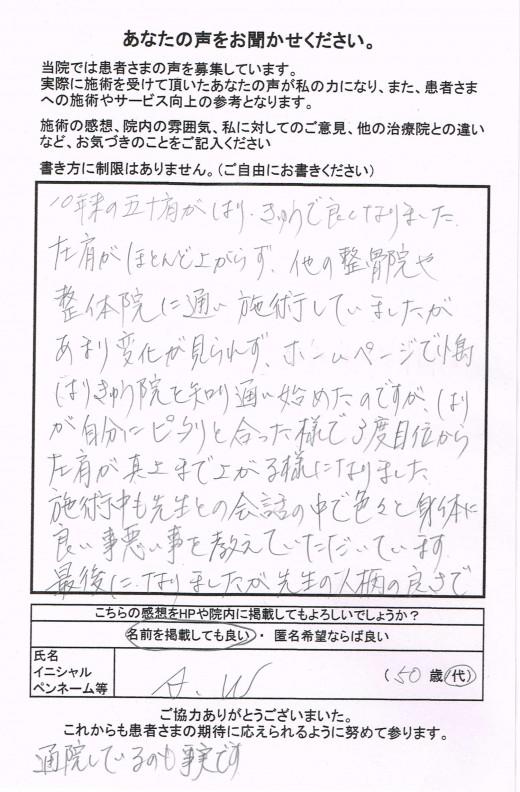 あなたの声をお聞かせください。
当院では患者さまの声を募集しています。
実際に施術を受けて頂いたあなたの声が私の力になり、また、患者さま
への施術やサービス向上の参考となります。
施術の感想、院内の雰囲気、私に対してのご意見、他の治療院との違い
など、お気づきのことをご記入ください
書き方に制限はありません。(ご自由にお書きください)
10年来の五十肩がはり、きゅうで良くなりました。
左肩がほとんど上がらず、他の整骨院や
整体院に通い施術していましたが
あまり変化が見られず、ホームページで小島
はりきゅう院を知り通い始めたのですが、はり
が自分にピタリと合った様で3度目位から
左肩が真上まで上がる様になりました。
施術中も先生との会話の中で色々と身体に
良い事悪い事を教えていただいています
最後になりましたが先生の人柄の良さで
こちらの感想をHPや院内に掲載してもよろしいでしょうか?
名前を掲載しても良い ・ 匿名希望ならば良い
氏名
イニシャル
ペンネーム等
A.W
(50歳代)
ご協力ありがとうございまいた。
これからも患者さまの期待に応えられるように努めて参ります。
通院しているのも事実です